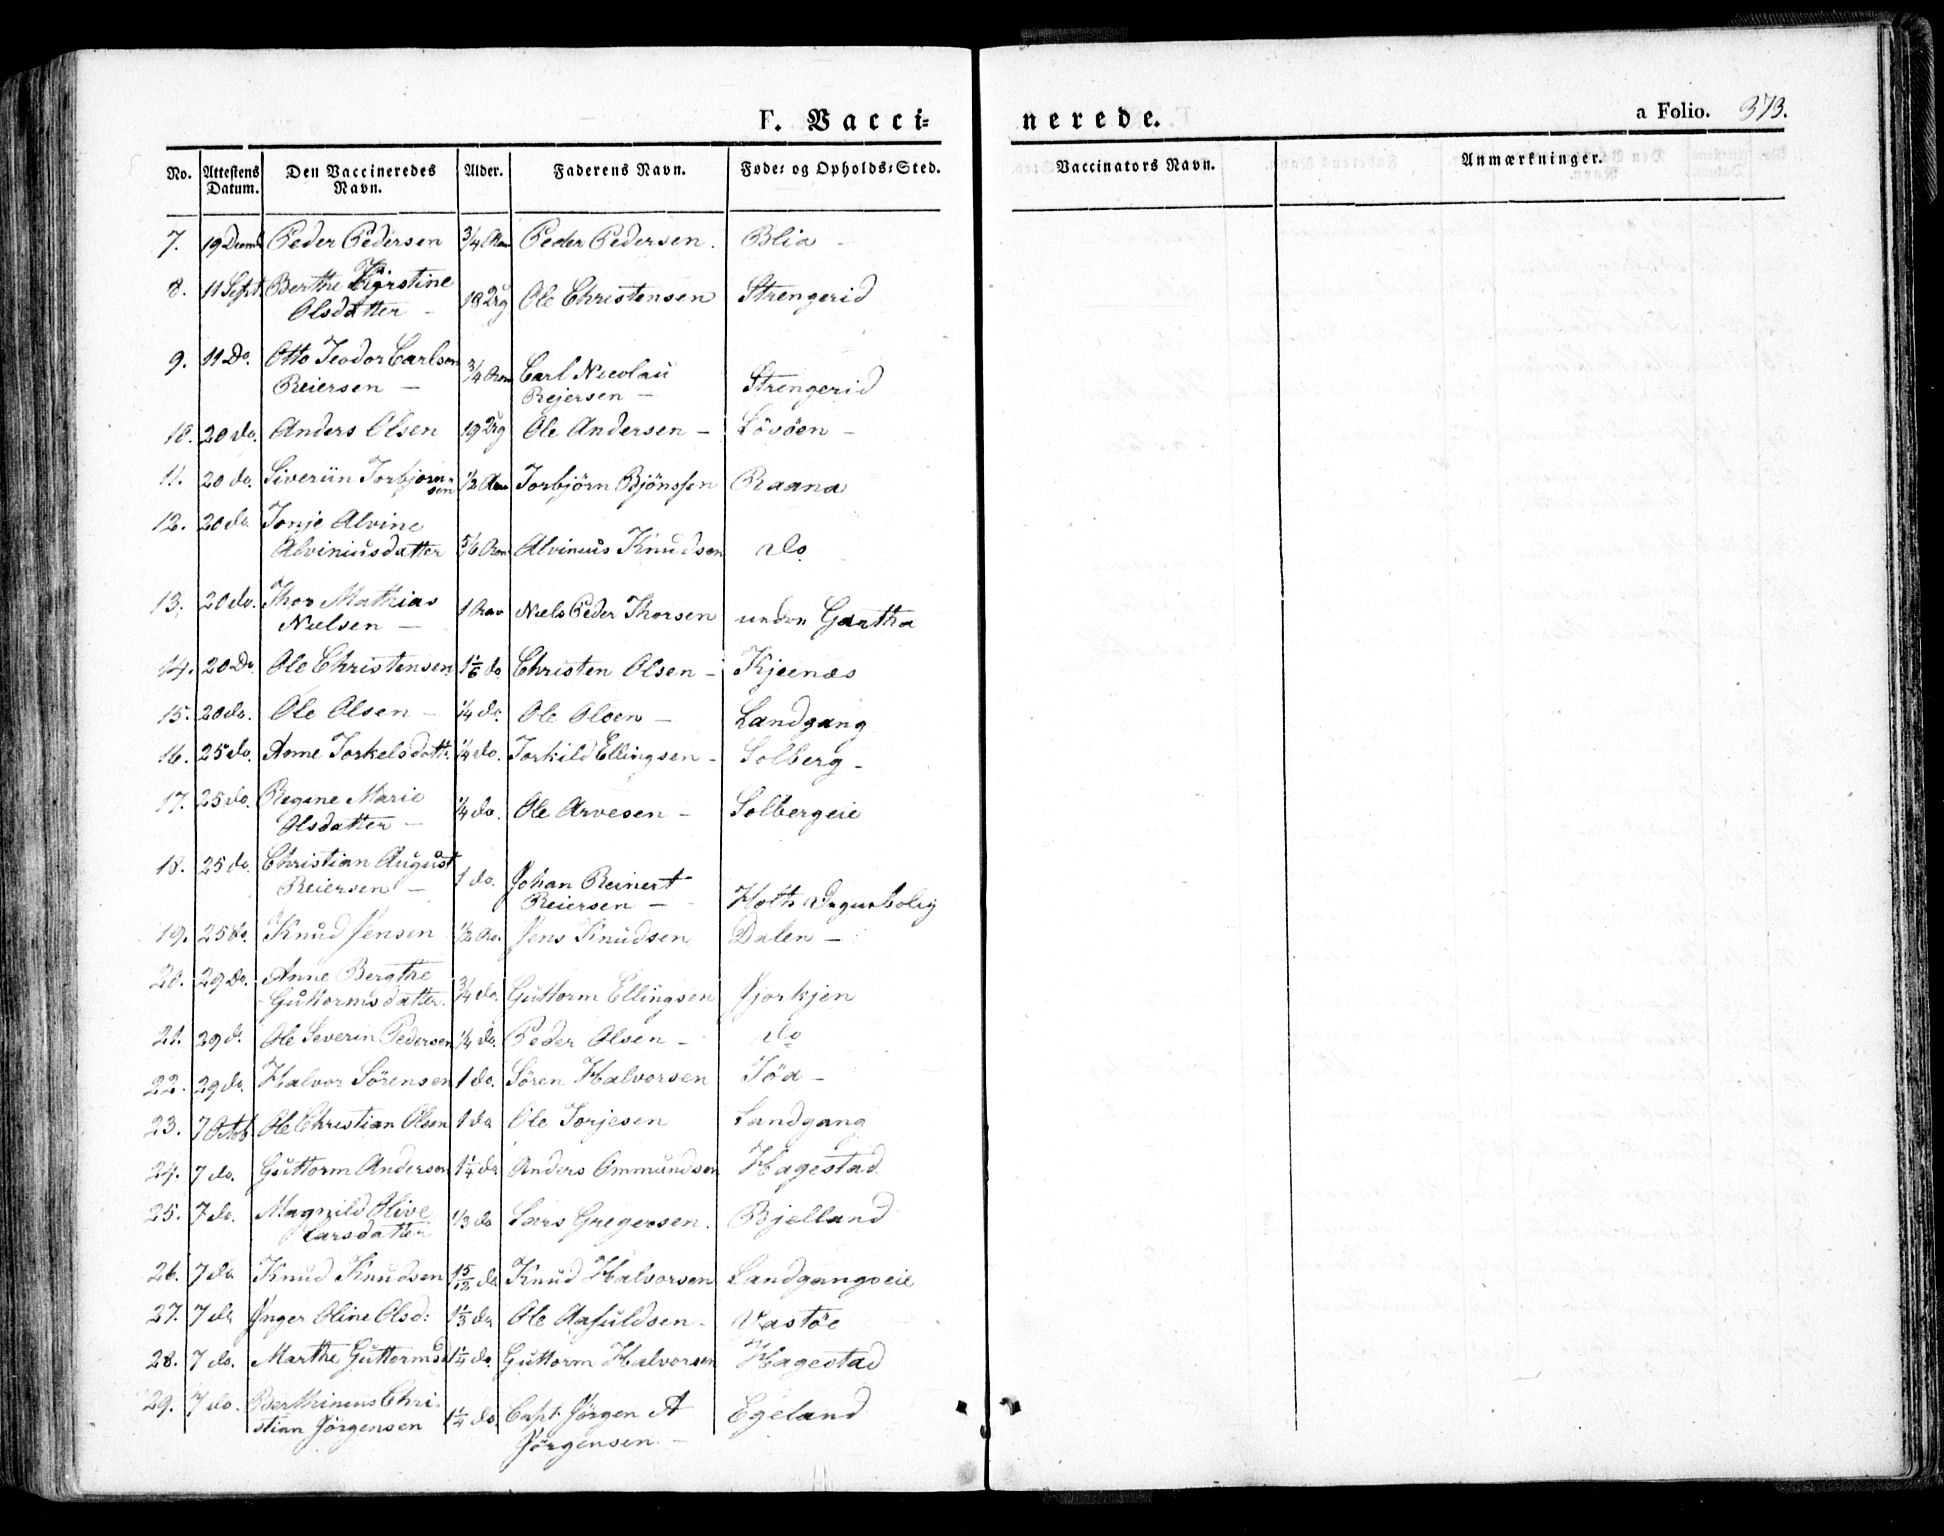 F. Vacci=
nerede.
a Folio. 373.
No. Attestens Datum. Den Vaccineredes Navn. Alder. Faderens Navn. Føde= og Opholds=Sted. Vaccinators Navn. Anmærkninger.
7. 19 Peder Pedersen 3/4 Peder Pedersen. Blia -
8. 11 Sept. Berthe Kirstine
Olsdatter - 18 Ole Christensen Strengerid
9. 11 Do. Otto Teodor Carlsen
Reiersen - 3/4 Carl Nicolai
Rejersen - Strengerid
10. 20 do. Anders Olsen 19 Ole Andersen - Lövöen -
11. 20 do. Siveriin Torbjorn-
sen 1/2 Aar Torbjörn Bjönssen Raana
12. 20 do. Tonje Alvine
Alviniusdatter 5/6 Alvinius Knudsen Do.
13. 20 do. Thor Mathias
Nielsen - 1 Aar Niels Peder Thorsen under Gartha
14. 20 Do Ole Christensen 1 1/6 do Christen Olsen - Kjeenæs
15. 20 do. Ole Olsen - 1/4 do. Ole Olsen - Landgang
16. 25 do. Anne Torkelsdatt. 1/4 do. Torkild Ellingsen - Solberg -
17. 25 do. Regine Marie
Olsdatter - 1/4 do. Ole Arvesen - Solbergeie
18. 25 do. Christian August
Reiersen - 1 do. Johan Reinert
Reiersen - Holth
19. 25 do. Knud Jensen 1/2 Aar Jens Knudsen Dalen -
20. 29 Do. Anne Bergthe
Guttormsdatter. 3/4 do. Guttorm Ellingsen Fjorkjen
21. 29 d. Ole Severin Pedersen 1/4 do. Peder Olsen - do
22. 29 do. Halvor Sörensen 1 do. Sören Halvorsen Töa -
23. 7 Octob. Ole Christian Olsen 1 do Ole Torjesen Landgang
24. 7 do. Guttorm Andersen 1 1/4 do Anders Ommundsen Hagestad
25. 7 do. Magnild Olive
Larsdatter 1/3 do Lars Gregersen. Bjelland
26. 7 do Knud Knudsen 15/12 do Knud Halvorsen Landgangseie
27. 7 do Inger Oline Olsd: 1 1/3 do Ole Aafuldsen - Vastöe
28. 7 do. Marthe Guttormsd 1 1/4 do. Guttorm Halvorsen Hagestad
29. 7 do. Berthinius Chri-
stian Jörgensen 1 1/4 do. Capt. Jörgen A
Jörgensen - Egeland